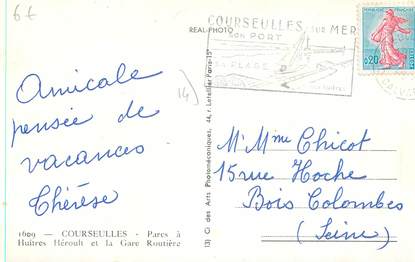 6€
REAL-PHOTO
COURSEULLES SUR MER
SON PORT
SA PLAGE
0,20
14
Amicale
pensée de
vacances
Thérèse
1609 — COURSEULLES - Parcs à
Huîtres Héroult et la Gare Routière
(3) Cie des Arts Photomécaniques, 44, r. Letellier Paris-15e
M. Mme Chicot
15 rue Hoche
Bois Colombes
(Seine)